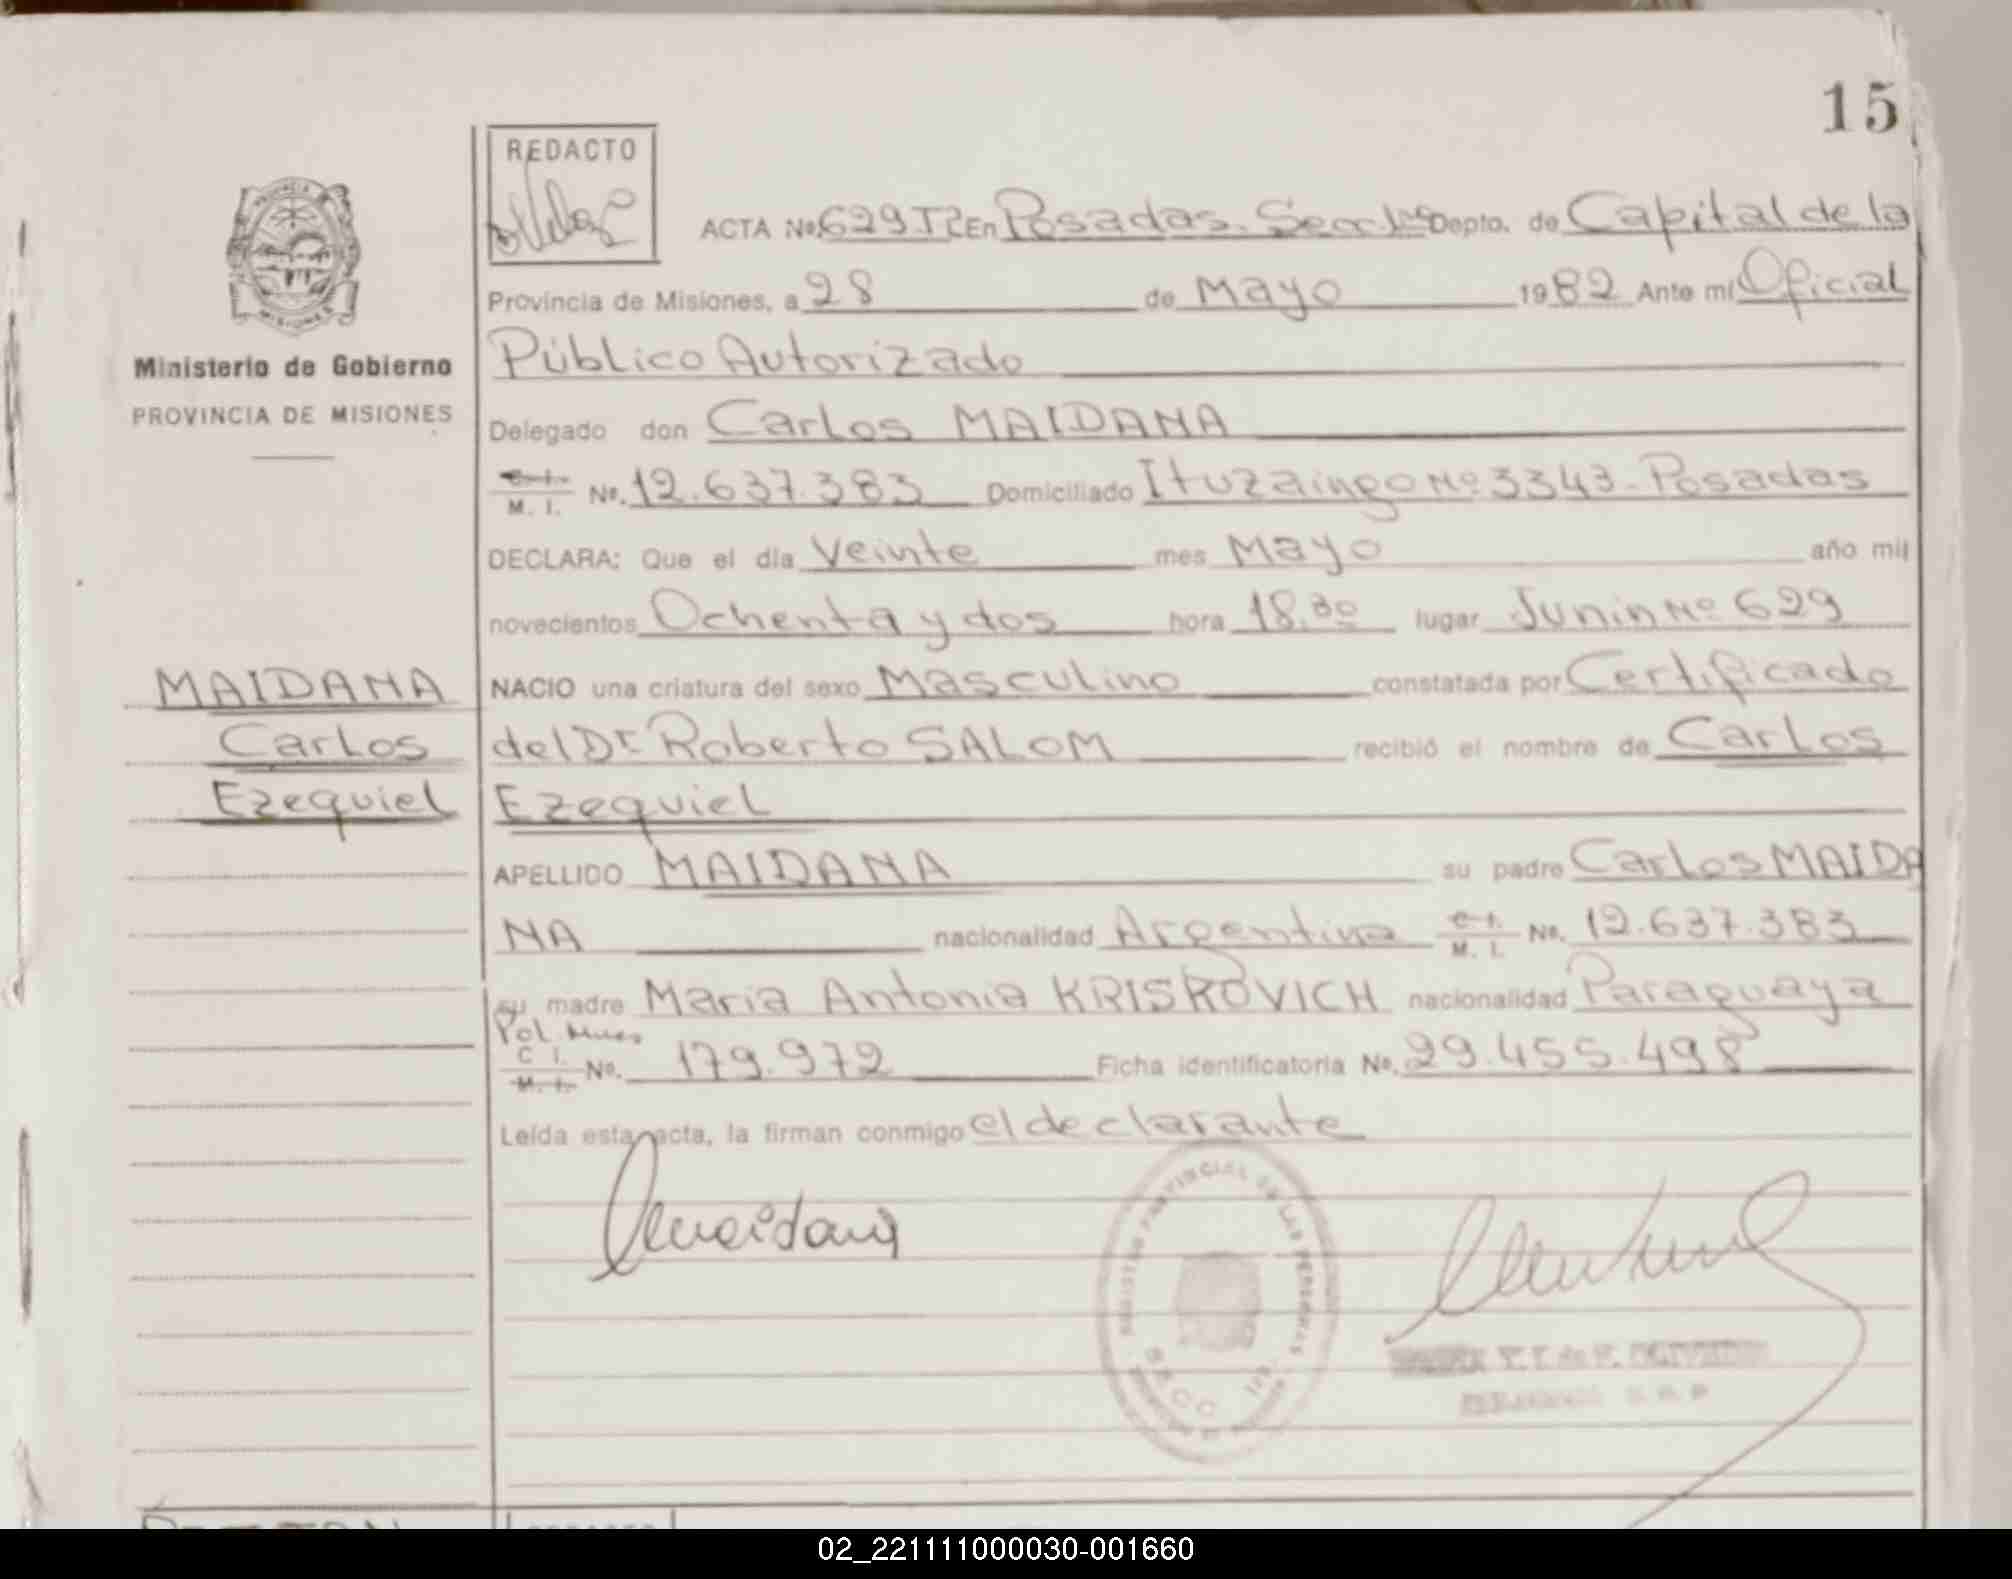 15
REDACTO
ACTA No. 629 T2 En Posadas. Secc. 1ra Depto. de Capital de la
Provincia de Misiones, a 28 de Mayo 1982 Ante mi Oficial
Público Autorizado
Delegado don Carlos MAIDANA
C. I. M. I. No. 12.637.383 Domiciliado Ituzaingo Nº 3343 - Posadas
DECLARA: Que el día Veinte mes Mayo año mil
novecientos Ochenta y dos hora 18.30 lugar Junin Nº 629
NACIO una criatura del sexo Masculino constatada por Certificado
del Dr. Roberto SALOM recibió el nombre de Carlos
Ezequiel
APELLIDO MAIDANA su padre Carlos MAIDA
NA nacionalidad Argentina C. I. M. I. No. 12.637.383
su madre Maria Antonia KRISKOVICH nacionalidad Paraguaya
Pol. Mnes
C. I. M. I. No. 179.972 Ficha identificatoria No. 29.455.498
Leída esta acta, la firman conmigo el declarante
PROVINCIA
MISIONES
Ministerio de Gobierno
PROVINCIA DE MISIONES
MAIDANA
Carlos
Ezequiel
CMaidana
REGISTRO PROVINCIAL DE LAS PERSONAS
02_221111000030-001660